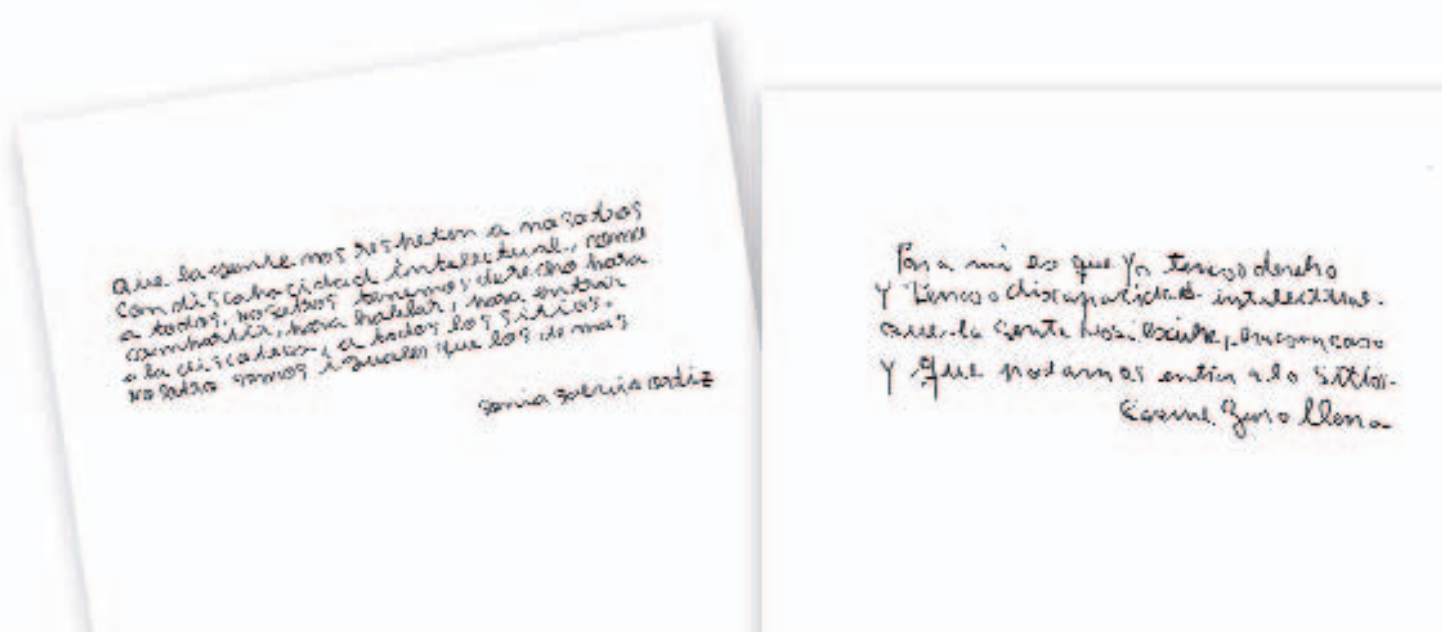 que la gente nos respeten a nosotros
con discapacidad intelectual, como
a todos, nosotros tenemos derecho para
compartir, para hablar, para entrar
a la discoteca, a todos los sitios.
nosotro somos iguales que los demas
sonia garcia ortiz
Para mi es que yo tengo derecho
y tengo discapacidad intelectual.
que la gente nos
y que podamos entrar a lo sitios.
Carme Llena